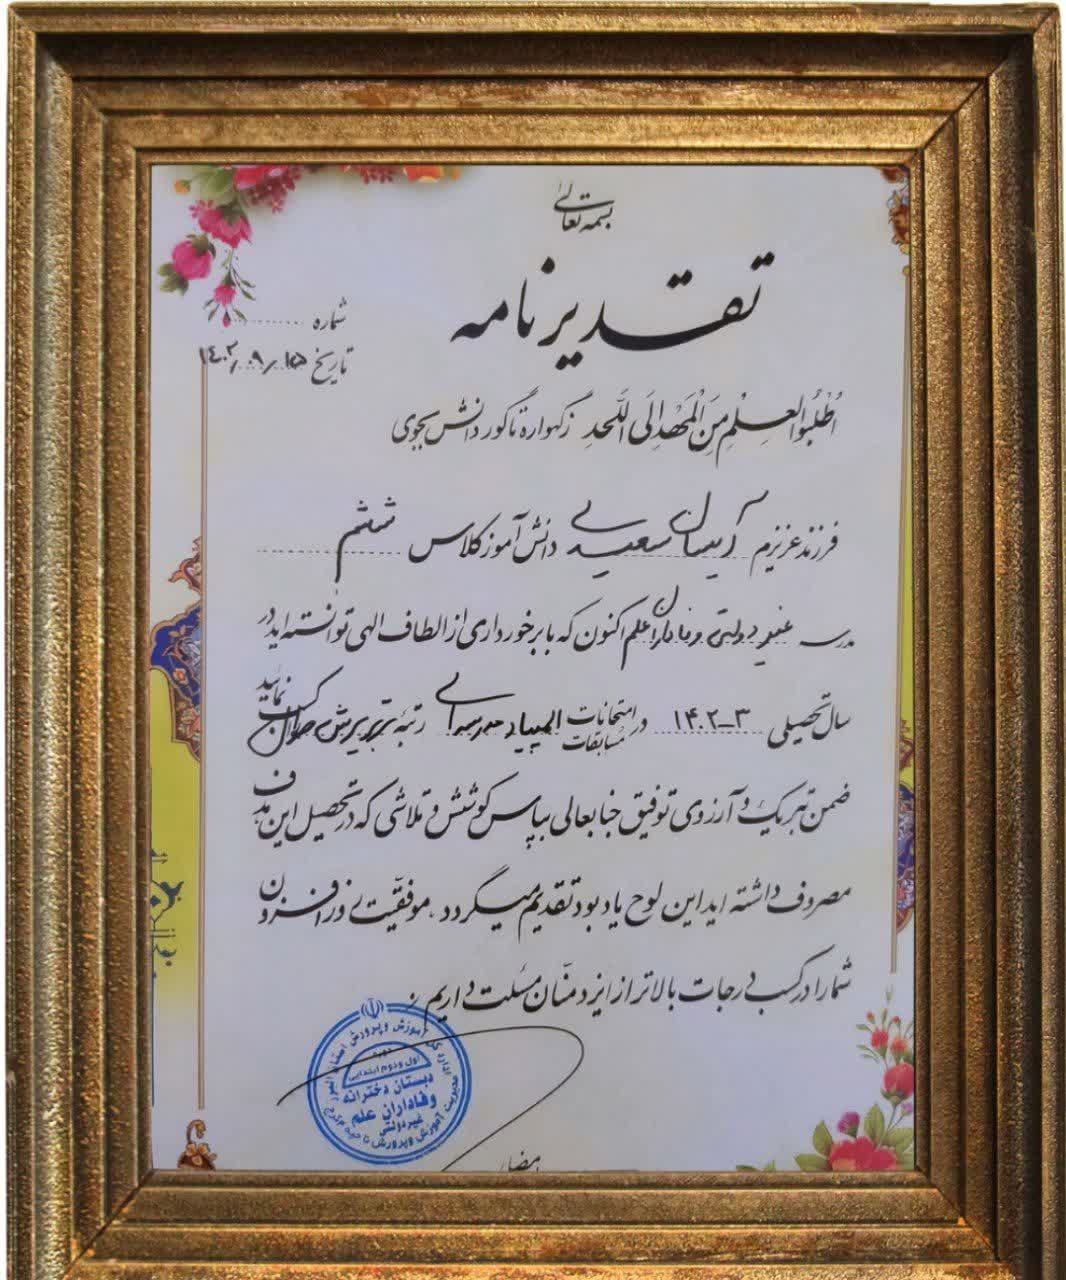 بسمه تعالی
تقدیرنامه
شماره ............
تاریخ ۱۴۰۲/۰۹/۱۵
اُطْلُبُوا العِلْم مِنَ الْمَهْدِ اِلَی اللَّحدِ زگهواره تا گور دانش بجوی
فرزند عزیزم سعیدی دانش آموز کلاس ششم
مدرسه غیر دولتی وفاداران علم اکنون که با برخورداری از الطاف الهی توانسته اید در
سال تحصیلی ۳-۱۴۰۲ در امتحانات مسابقات المپیاد مدرسه ای رتبه برتر پرسش کسب نمائید
ضمن تبریک و آرزوی توفیق جنابعالی بپاس کوشش و تلاشی که در تحصیل این هدف
مصروف داشته اید این لوح یادبود تقدیم میگردد. موفقیت روز افزون
شما را در کسب درجات بالاتر از ایزد منّان مسئلت داریم.
اداره کل آموزش و پرورش استان البرز
مدیریت آموزش و پرورش ناحیه ۴ کرج
دوره
اول و دوم ابتدایی
دبستان دخترانه
وفاداران علم
غیردولتی